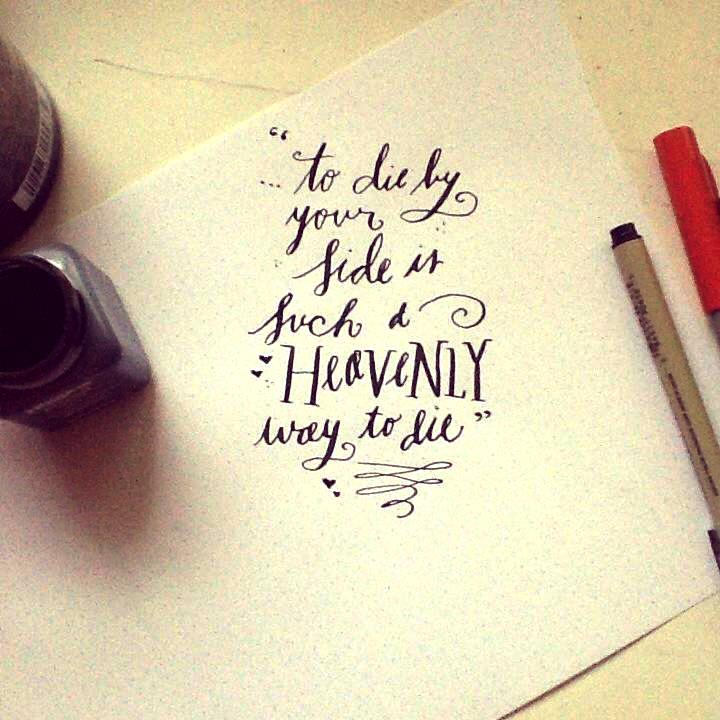 “
... to die by
your
side is
such a
HEAVENLY
way to die”